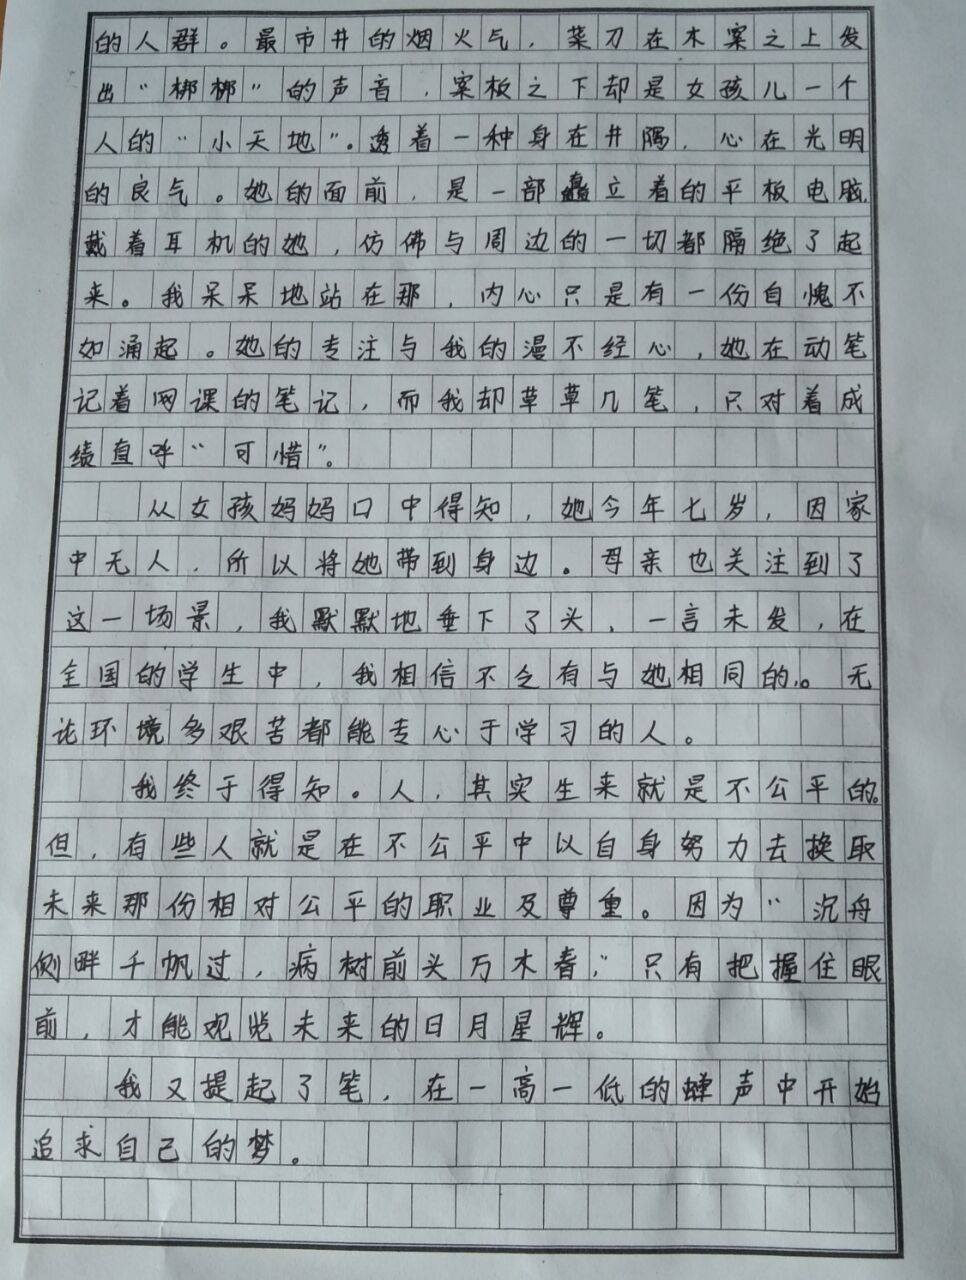 的人群。最市井的烟火气，菜刀在木案之上发
出“梆梆”的声音，案板之下却是女孩儿一个
人的“小天地”。透着一种身在井隅，心在光明
的良气。她的面前，是一部矗立着的平板电脑，
戴着耳机的她，仿佛与周边的一切都隔绝了起
来。我呆呆地站在那，内心只是有一份自愧不
如涌起。她的专注与我的漫不经心，她在动笔
记着网课的笔记，而我却草草几笔，只对着成
绩直呼“可惜”。
从女孩妈妈口中得知，她今年七岁，因家
中无人，所以将她带到身边。母亲也关注到了
这一场景，我默默地垂下了头，一言未发，在
全国的学生中，我相信不乏有与她相同的。无
论环境多艰苦都能专心于学习的人。
我终于得知。人，其实生来就是不公平的。
但，有些人就是在不公平中以自身努力去换取
未来那份相对公平的职业及尊重。因为“沉舟
侧畔千帆过，病树前头万木春，”只有把握住眼
前，才能观览未来的日月星辉。
我又提起了笔，在一高一低的蝉声中开始
追求自己的梦。